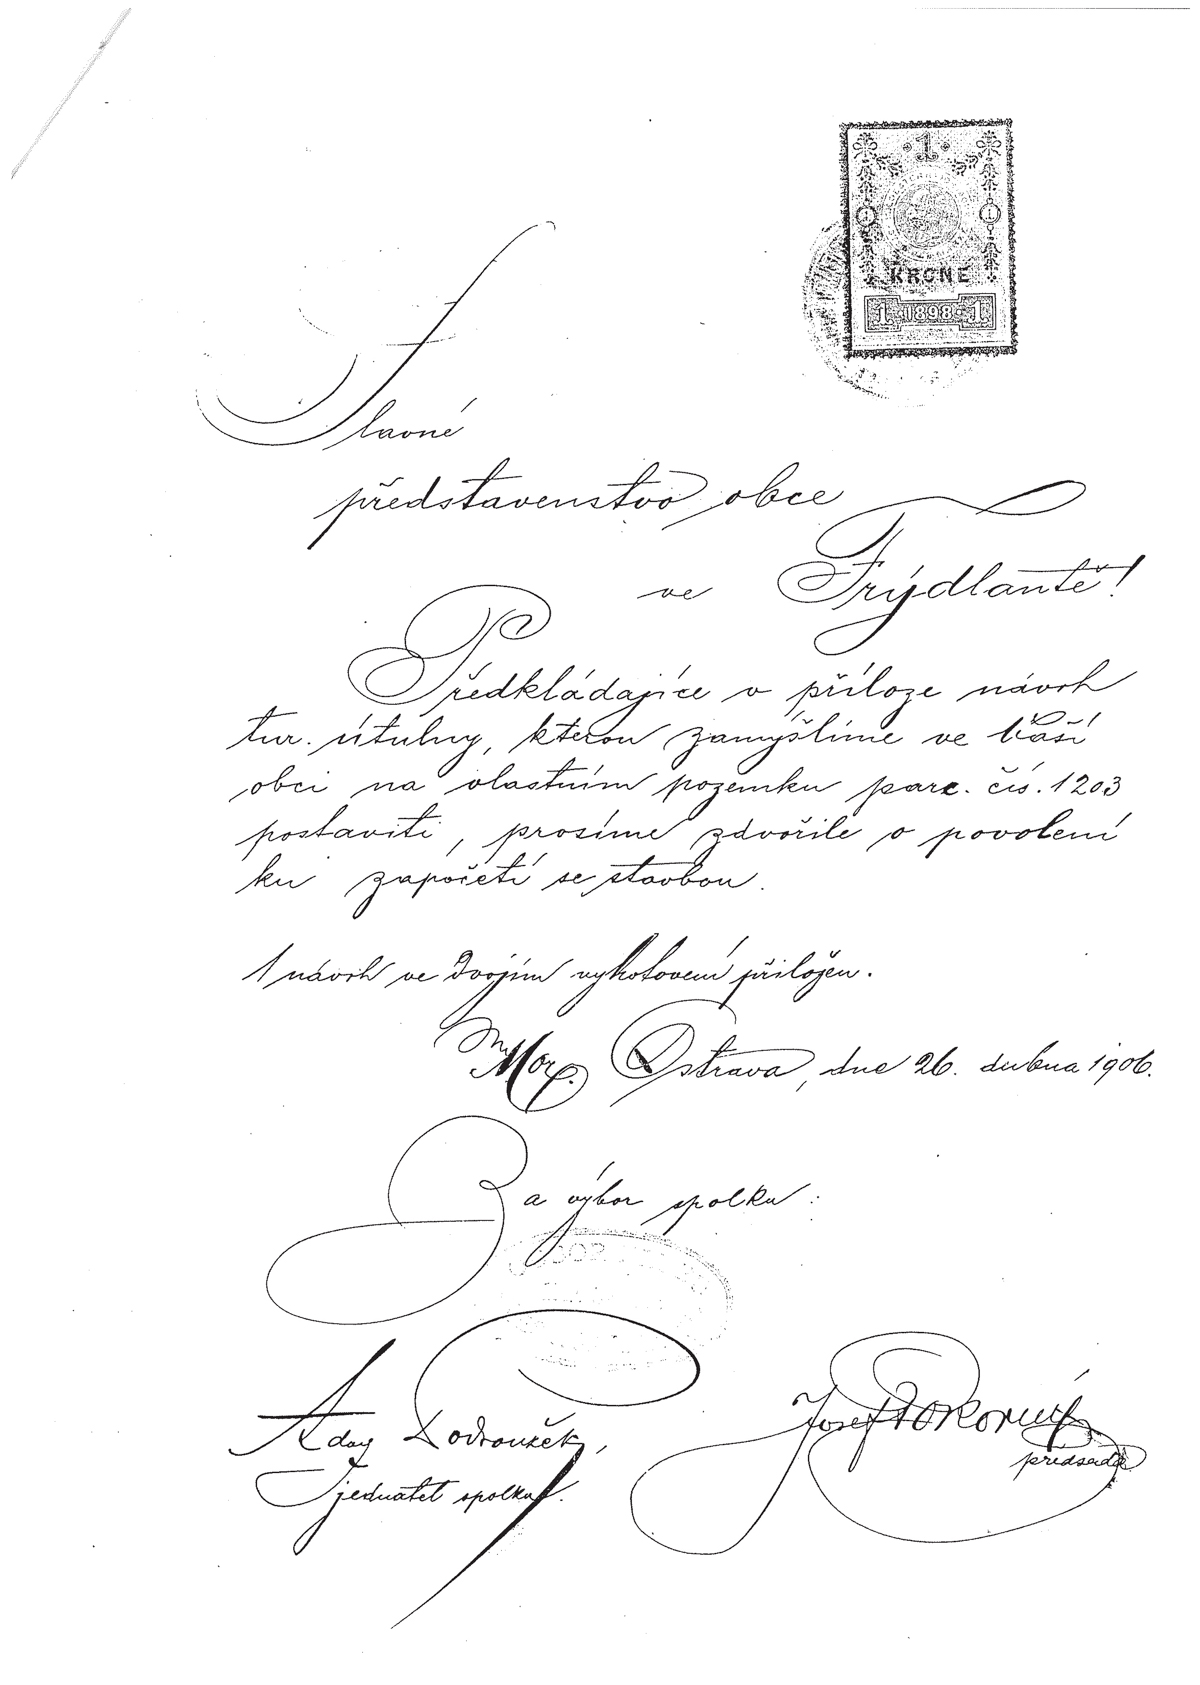 1
1 1
KRONE
1 1898 1
Slavné
představenstvo obce
ve Frýdlantě!
Předkládajíce v příloze návrh
tur. útulny, kterou zamýšlíme ve Vaší
obci na vlastním pozemku parc. čís. 1203
postaviti, prosíme zdvořile o povolení
ku započetí se stavbou.
1 návrh ve dvojím vyhotovení přiložen.
Mor. Ostrava, dne 26. dubna 1906.
Za výbor spolku:
Josef Pokorný
předseda
jednatel spolku.